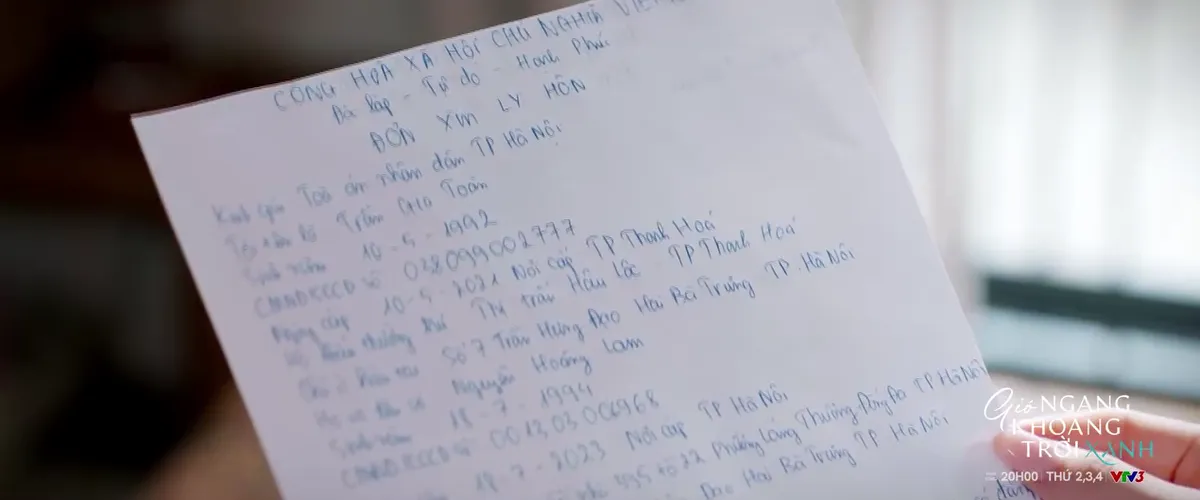 CỘNG HOÀ XÃ HỘI CHỦ NGHĨA VIỆT
Độc lập - Tự do - Hạnh Phúc
ĐƠN XIN LY HÔN
Kính gửi Toà án nhân dân TP Hà Nội
Tôi tên là Trần Gia Toàn
Sinh năm 10-5-1992
CMND/CCCD số 038099002777
Ngày cấp 10-5-2021 Nơi cấp TP Thanh Hoá
Thị trấn Hậu Lộc TP Thanh Hoá
Số 7 Trần Hưng Đạo Hai Bà Trưng TP. Hà Nội
Nguyễn Hoàng Lam
Sinh năm 18-7-1994
CMND/CCCD số 0013,03006968
18-7-2023 Nơi cấp TP Hà Nội
Phường Láng Thượng Đống Đa TP Hà Nội
Đạo Hai Bà Trưng TP Hà Nội
Gió NGANG
KHOẢNG
TRỜI XANH
20H00 THỨ 2,3,4 VTV3